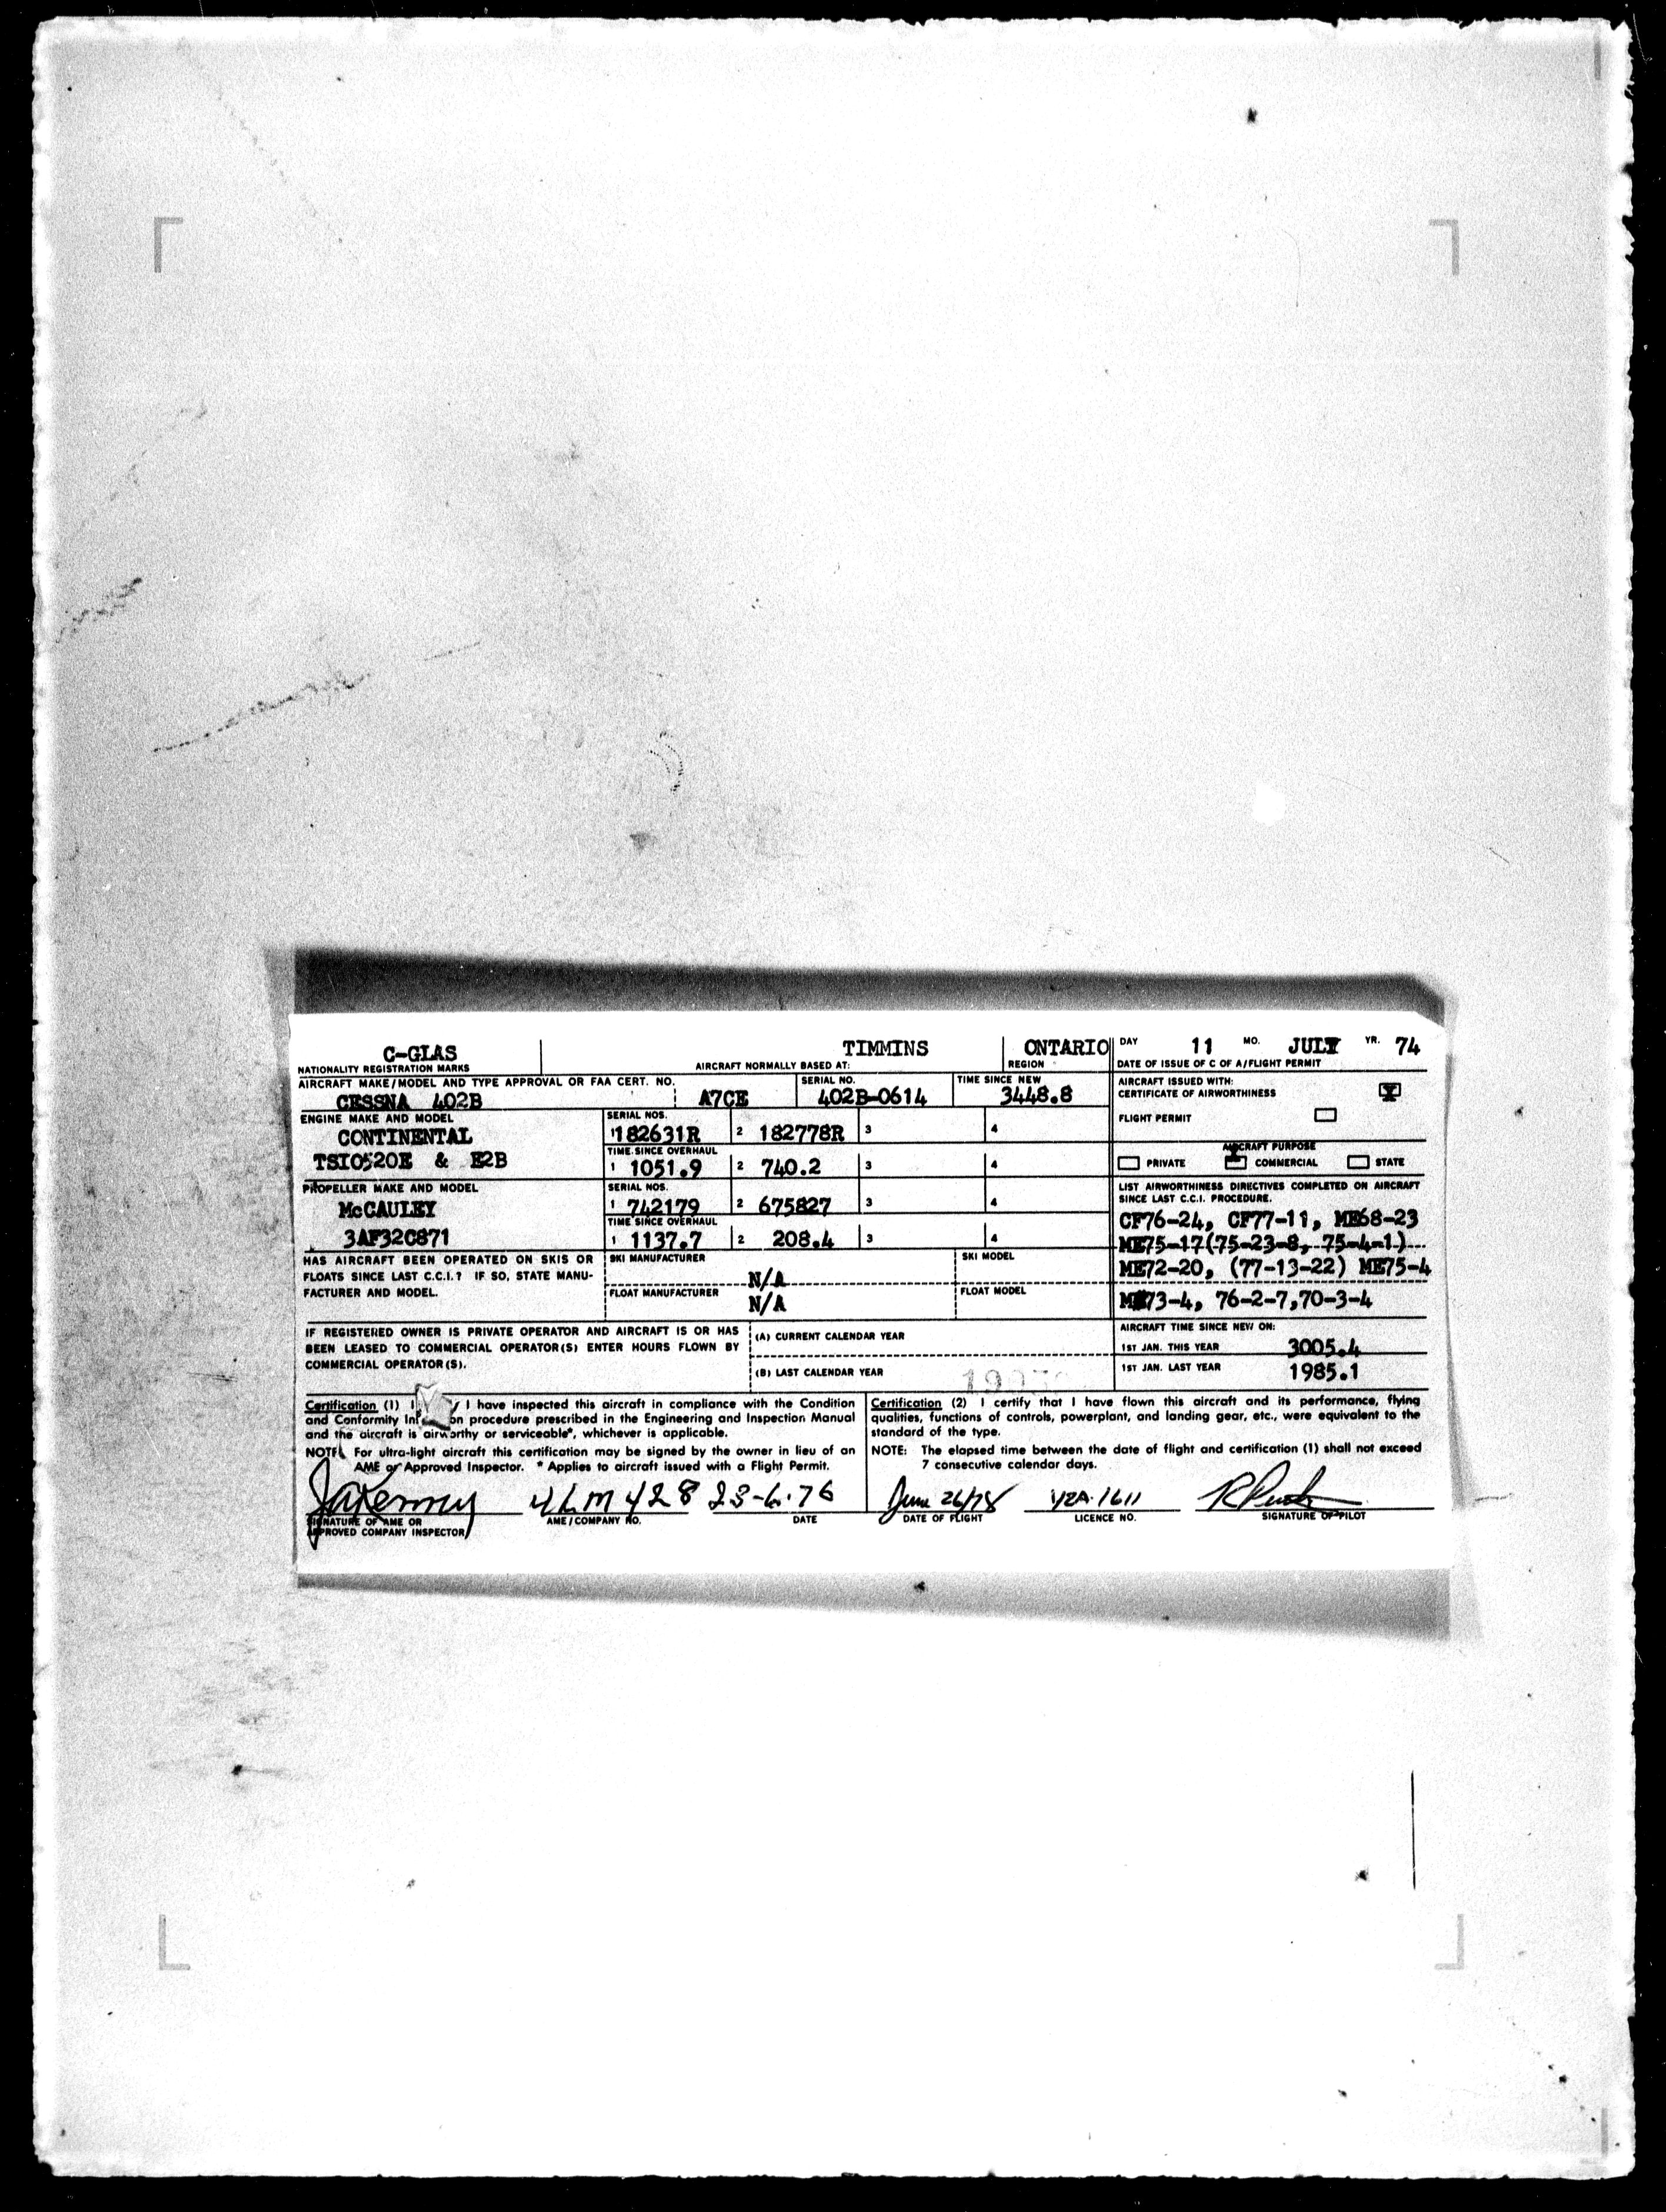 C-GLAS TIMMINS ONTARIO DAY 11 MO. JULY YR. 74
NATIONALITY REGISTRATION MARKS AIRCRAFT NORMALLY BASED AT: REGION DATE OF ISSUE OF C OF A/FLIGHT PERMIT
AIRCRAFT MAKE/MODEL AND TYPE APPROVAL OR FAA CERT. NO. SERIAL NO. TIME SINCE NEW
CESSNA 402B A7CE 402B-0614 3448.8
AIRCRAFT ISSUED WITH:
CERTIFICATE OF AIRWORTHINESS X
FLIGHT PERMIT
ENGINE MAKE AND MODEL SERIAL NOS.
CONTINENTAL 1 182631R 2 182778R 3 4
TIME SINCE OVERHAUL
TSIO520E & E2B 1 1051.9 2 740.2 3 4
AIRCRAFT PURPOSE
PRIVATE COMMERCIAL STATE
PROPELLER MAKE AND MODEL SERIAL NOS.
McCAULEY 1 742179 2 675827 3 4
TIME SINCE OVERHAUL
3AF32C871 1 1137.7 2 208.4 3 4
LIST AIRWORTHINESS DIRECTIVES COMPLETED ON AIRCRAFT
SINCE LAST C.C.I. PROCEDURE.
CF76-24, CF77-11, ME68-23
ME75-17(75-23-8, 75-4-1)
ME72-20, (77-13-22) ME75-4
ME73-4, 76-2-7,70-3-4
HAS AIRCRAFT BEEN OPERATED ON SKIS OR
FLOATS SINCE LAST C.C.I.? IF SO, STATE MANU-
FACTURER AND MODEL.
SKI MANUFACTURER N/A SKI MODEL
FLOAT MANUFACTURER N/A FLOAT MODEL
IF REGISTERED OWNER IS PRIVATE OPERATOR AND AIRCRAFT IS OR HAS
BEEN LEASED TO COMMERCIAL OPERATOR(S) ENTER HOURS FLOWN BY
COMMERCIAL OPERATOR(S).
(A) CURRENT CALENDAR YEAR
(B) LAST CALENDAR YEAR
AIRCRAFT TIME SINCE NEW ON:
1ST JAN. THIS YEAR 3005.4
1ST JAN. LAST YEAR 1985.1
Certification (1) I have inspected this aircraft in compliance with the Condition
and Conformity procedure prescribed in the Engineering and Inspection Manual
and the aircraft is airworthy or serviceable*, whichever is applicable.
NOTE For ultra-light aircraft this certification may be signed by the owner in lieu of an
AME or Approved Inspector. * Applies to aircraft issued with a Flight Permit.
Certification (2) I certify that I have flown this aircraft and its performance, flying
qualities, functions of controls, powerplant, and landing gear, etc., were equivalent to the
standard of the type.
NOTE: The elapsed time between the date of flight and certification (1) shall not exceed
7 consecutive calendar days.
428 23-6-76 June 26/78 YZA-1611
SIGNATURE OF AME OR
APPROVED COMPANY INSPECTOR AME/COMPANY NO. DATE DATE OF FLIGHT LICENCE NO. SIGNATURE OF PILOT